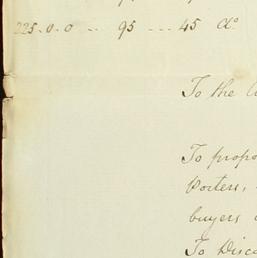 225.0.0 .. 95 ... 45 do
To the
To propo
Porters,
buyers
To Disco